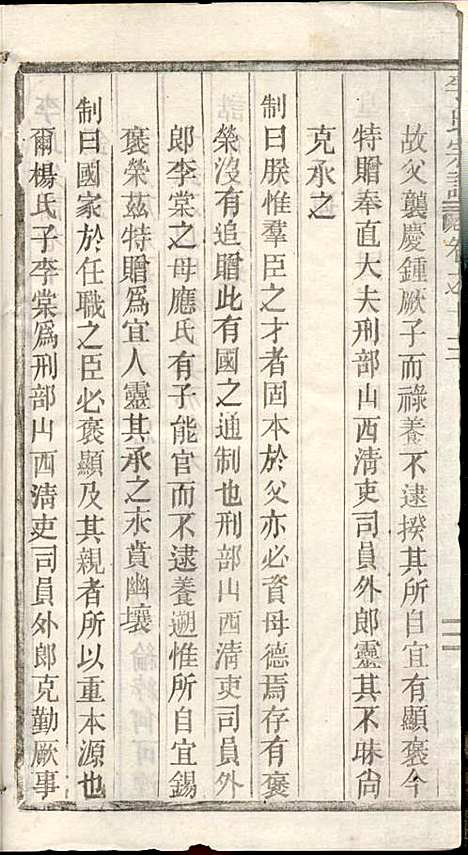 李氏宗譜
故父龔慶鍾厥子而祿養不逮揆其所自宜有顯褒今
特贈奉直大夫刑部山西清吏司員外郎靈其不昧尚
克承之
制曰朕惟羣臣之才者固本於父亦必資母德焉存有褒
榮沒有追贈此有國之通制也刑部山西清吏司員外
郎李棠之母應氏有子能官而不逮養遡惟所自宜錫
褒榮茲特贈爲宜人靈其承之永賁幽壤
制曰國家於任職之臣必褒顯及其親者所以重本源也
爾楊氏子李棠爲刑部山西清吏司員外郎克勤厥事